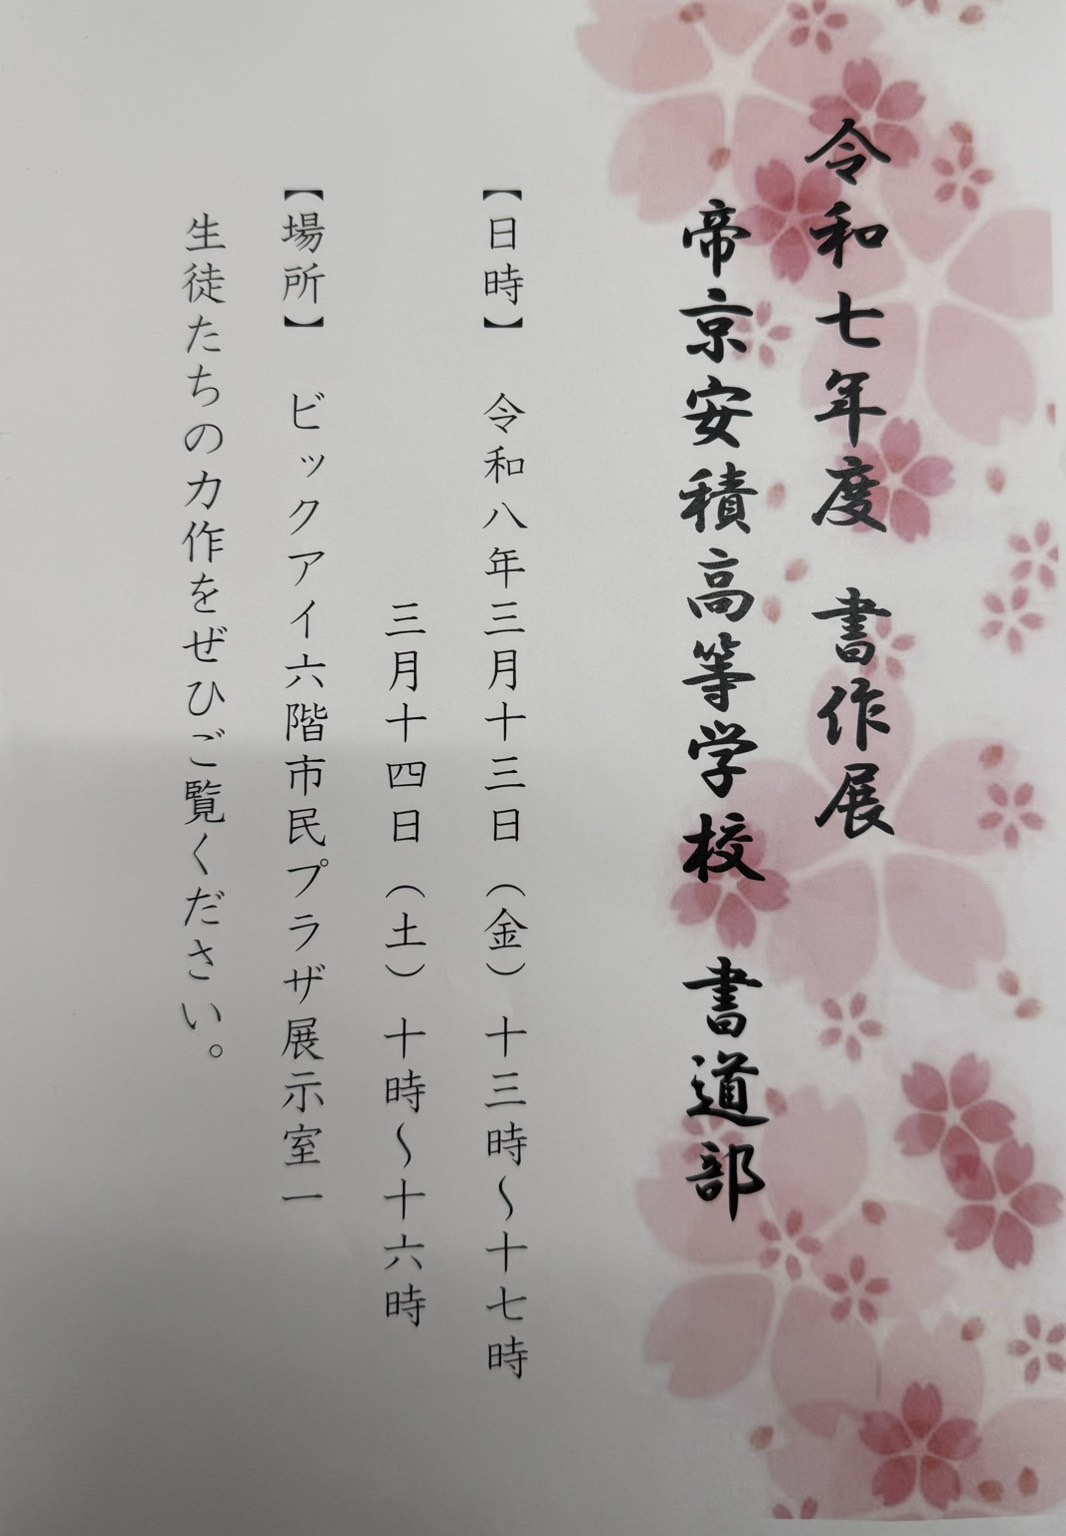 令和七年度　書作展
帝京安積高等学校　書道部
【日時】　令和八年三月十三日（金）十三時～十七時
三月十四日（土）十時～十六時
【場所】　ビックアイ六階市民プラザ展示室一
生徒たちの力作をぜひご覧ください。